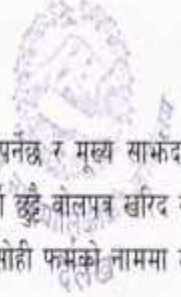 पर्नेछ र मूख्य साझेदा
छुट्टै बोलपत्र खरिद
सोही फर्मको नाममा